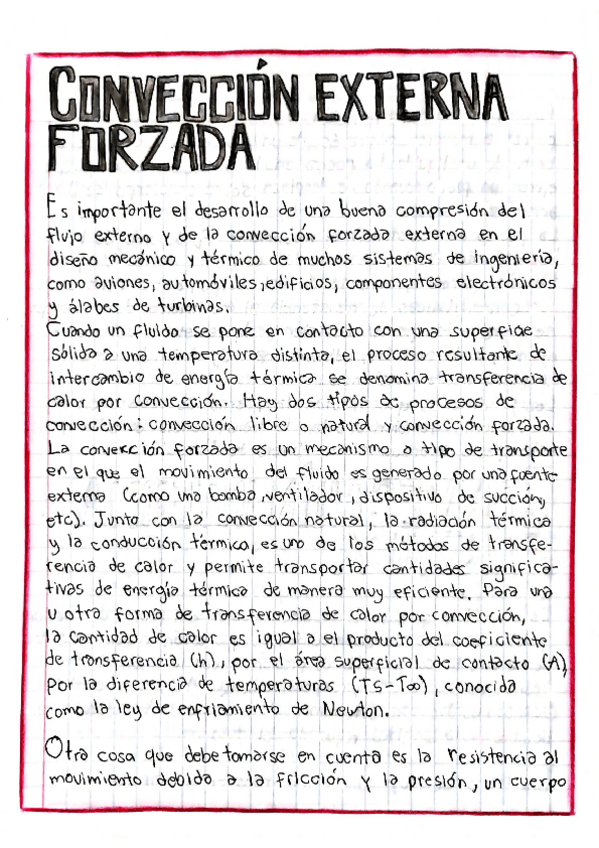 CONVECCIÓN EXTERNA
FORZADA
Es importante el desarrollo de una buena compresión del
flujo externo y de la convección forzada externa en el
diseño mecánico y térmico de muchos sistemas de ingeniería,
como aviones, automóviles, edificios, componentes electrónicos
y álabes de turbinas.
Cuando un fluido se pone en contacto con una superficie
sólida a una temperatura distinta, el proceso resultante de
intercambio de energía térmica se denomina transferencia de
calor por convección. Hay dos tipos de procesos de
convección: convección libre o natural y convección forzada.
La convección forzada es un mecanismo o tipo de transporte
en el que el movimiento del fluido es generado por una fuente
externa (como una bomba, ventilador, dispositivo de succión,
etc). Junto con la convección natural, la radiación térmica
y la conducción térmica, es uno de los métodos de transfe-
rencia de calor y permite transportar cantidades significa-
tivas de energía térmica de manera muy eficiente. Para una
u otra forma de transferencia de calor por convección,
la cantidad de calor es igual a el producto del coeficiente
de transferencia (h), por el área superficial de contacto (A),
por la diferencia de temperaturas (TS-T∞), conocida
como la ley de enfriamiento de Newton.
Otra cosa que debe tomarse en cuenta es la resistencia al
movimiento debida a la fricción y la presión, un cuerpo